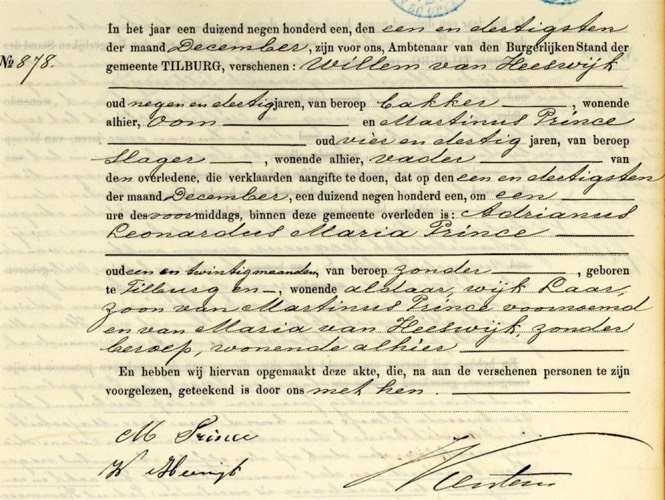 In het jaar een duizend negen honderd een, den een en dertigsten
der maand December, zijn voor ons, Ambtenaar van den Burgerlijken Stand der
gemeente TILBURG, verschenen: Willem van Heeswijk
No 878.
oud negen en dertig jaren, van beroep bakker, wonende
alhier, oom en Martinus Prince
oud vier en dertig jaren, van beroep
slager, wonende alhier, vader van
den overledene, die verklaarden aangifte te doen, dat op den een en dertigsten
der maand December, een duizend negen honderd een, om een
ure des voormiddags, binnen deze gemeente overleden is: Adrianus
Leonardus Maria Prince
oud een en twintig maanden, van beroep zonder, geboren
te Tilburg en —, wonende aldaar, wijk Laar,
zoon van Martinus Prince voornoemd
en van Maria van Heeswijk, zonder
beroep, wonende alhier
En hebben wij hiervan opgemaakt deze akte, die, na aan de verschenen personen te zijn
voorgelezen, geteekend is door ons met hen.
M Prince